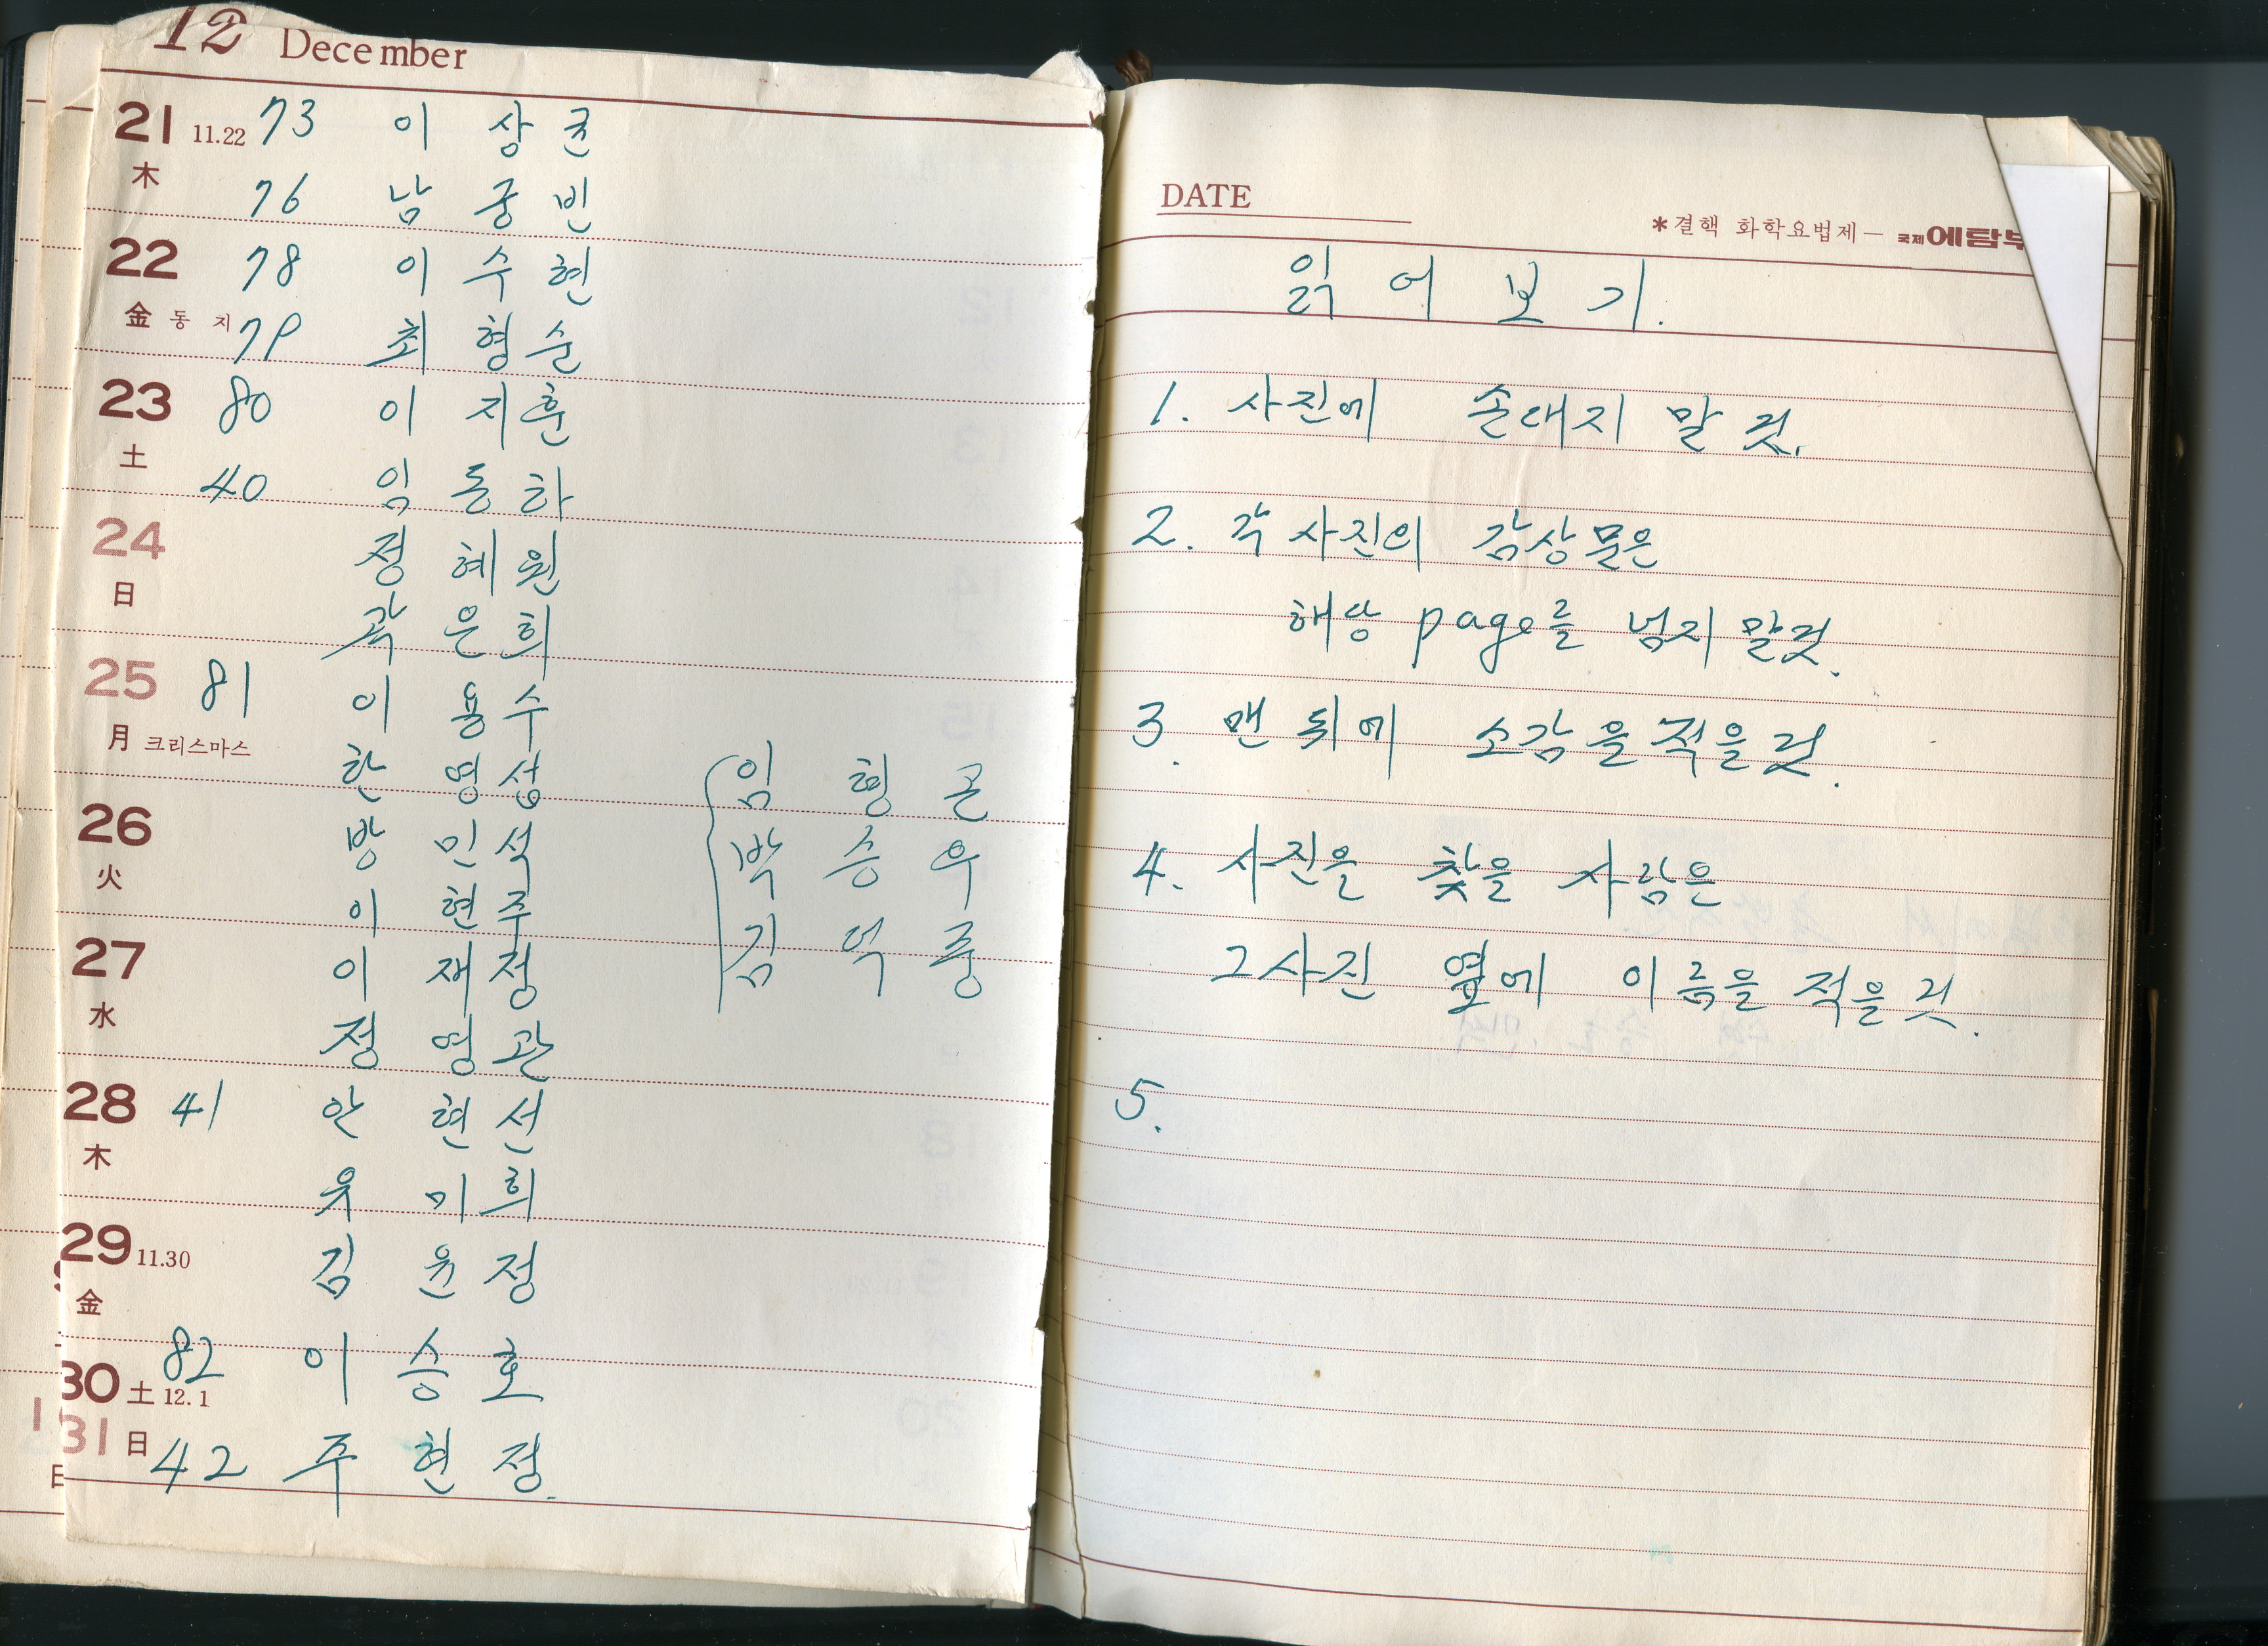 12 December
21 11.22 73 이 상 근
木
76 남 궁 빈
22 78 이 수 현
金 동 지 79 최 형 순
23 80 이 지 훈
土
40 임 동 하
24 정 혜 원
日
곽 은 희
25 81 이 용 수
月 크리스마스
한 영 섭
26 방 민 석
火
이 현 주
27 이 재 정
水
정 영 관
28 41 안 현 선
木
유 미 희
29 11.30 김 윤 정
金
82 이 승 호
30 土 12.1
31 日 42 주 현 정.
임 형 근
박 승 우
김 억 중
DATE
*결핵 화학요법제— 국제에탐부
읽 어 보 기.
1. 사진에 손대지 말 것.
2. 각 사진의 감상문은
해당 page를 넘지 말것.
3. 맨 뒤에 소감을 적을 것.
4. 사진을 찾을 사람은
그사진 옆에 이름을 적을 것.
5.